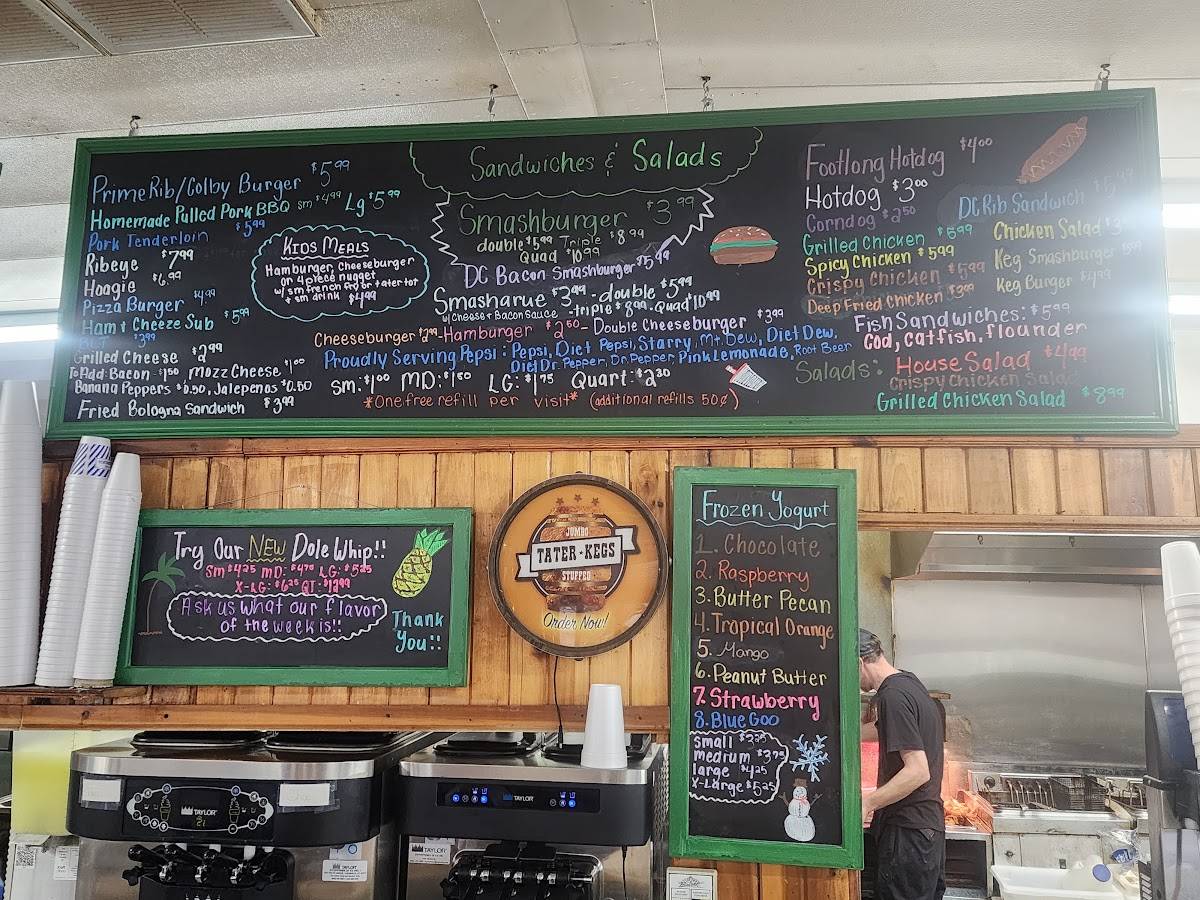 Sandwiches & Salads
Prime Rib/Colby Burger $5.99
Homemade Pulled Pork BBQ sm $4.99 Lg $5.99
Pork Tenderloin $5.99
Ribeye $7.99
Hoagie $6.99
Pizza Burger $4.99
Ham & Cheeze Sub $5.99
BLT $3.99
Grilled Cheese $2.99
To Add: Bacon $1.50 Mozz Cheese $1.00
Banana Peppers $0.50, Jalepenos $0.50
Fried Bologna Sandwich $3.99
Kids Meals
Hamburger, Cheeseburger
or 4 piece nugget
w/ sm french fry or tater tot
& sm drink $4.99
Smashburger $3.99
double $5.99 Triple $8.99
Quad $10.99
DC Bacon Smashburger $5.99
Smasharue $3.99 - double $5.99
w/ Cheese & Bacon Sauce - triple $8.99 - Quad $10.99
Cheeseburger $2.99 - Hamburger $2.50 - Double Cheeseburger $3.99
Proudly Serving Pepsi: Pepsi, Diet Pepsi, Starry, Mt. Dew, Diet Dew,
Diet Dr. Pepper, Dr. Pepper, Pink Lemonade, Root Beer
Sm: $1.00 MD: $1.50 LG: $1.75 Quart: $2.30
*One free refill per visit* (additional refills 50¢)
Footlong Hotdog $4.00
Hotdog $3.00
Corndog $2.50
Grilled Chicken $5.99
Spicy Chicken $5.99
Crispy Chicken $5.99
Deep Fried Chicken $3.99
DC Rib Sandwich
Chicken Salad
Keg Smashburger
Keg Burger $4.99
Fish Sandwiches: $5.99
Cod, catfish, flounder
Salads: House Salad $4.99
Crispy Chicken Salad
Grilled Chicken Salad $8.99
Try Our NEW Dole Whip!!
Sm $4.25 MD: $4.75 LG: $5.25
X-LG: $6.25 QT: $12.99
Ask us what our flavor
of the week is!!
Thank
You!!
JUMBO
TATER-KEGS
STUFFED
Order Now!
Frozen Yogurt
1. Chocolate
2. Raspberry
3. Butter Pecan
4. Tropical Orange
5. Mango
6. Peanut Butter
7. Strawberry
8. Blue Goo
small $3.25
medium $3.75
large $4.25
X-Large $5.25
TAYLOR
TAYLOR